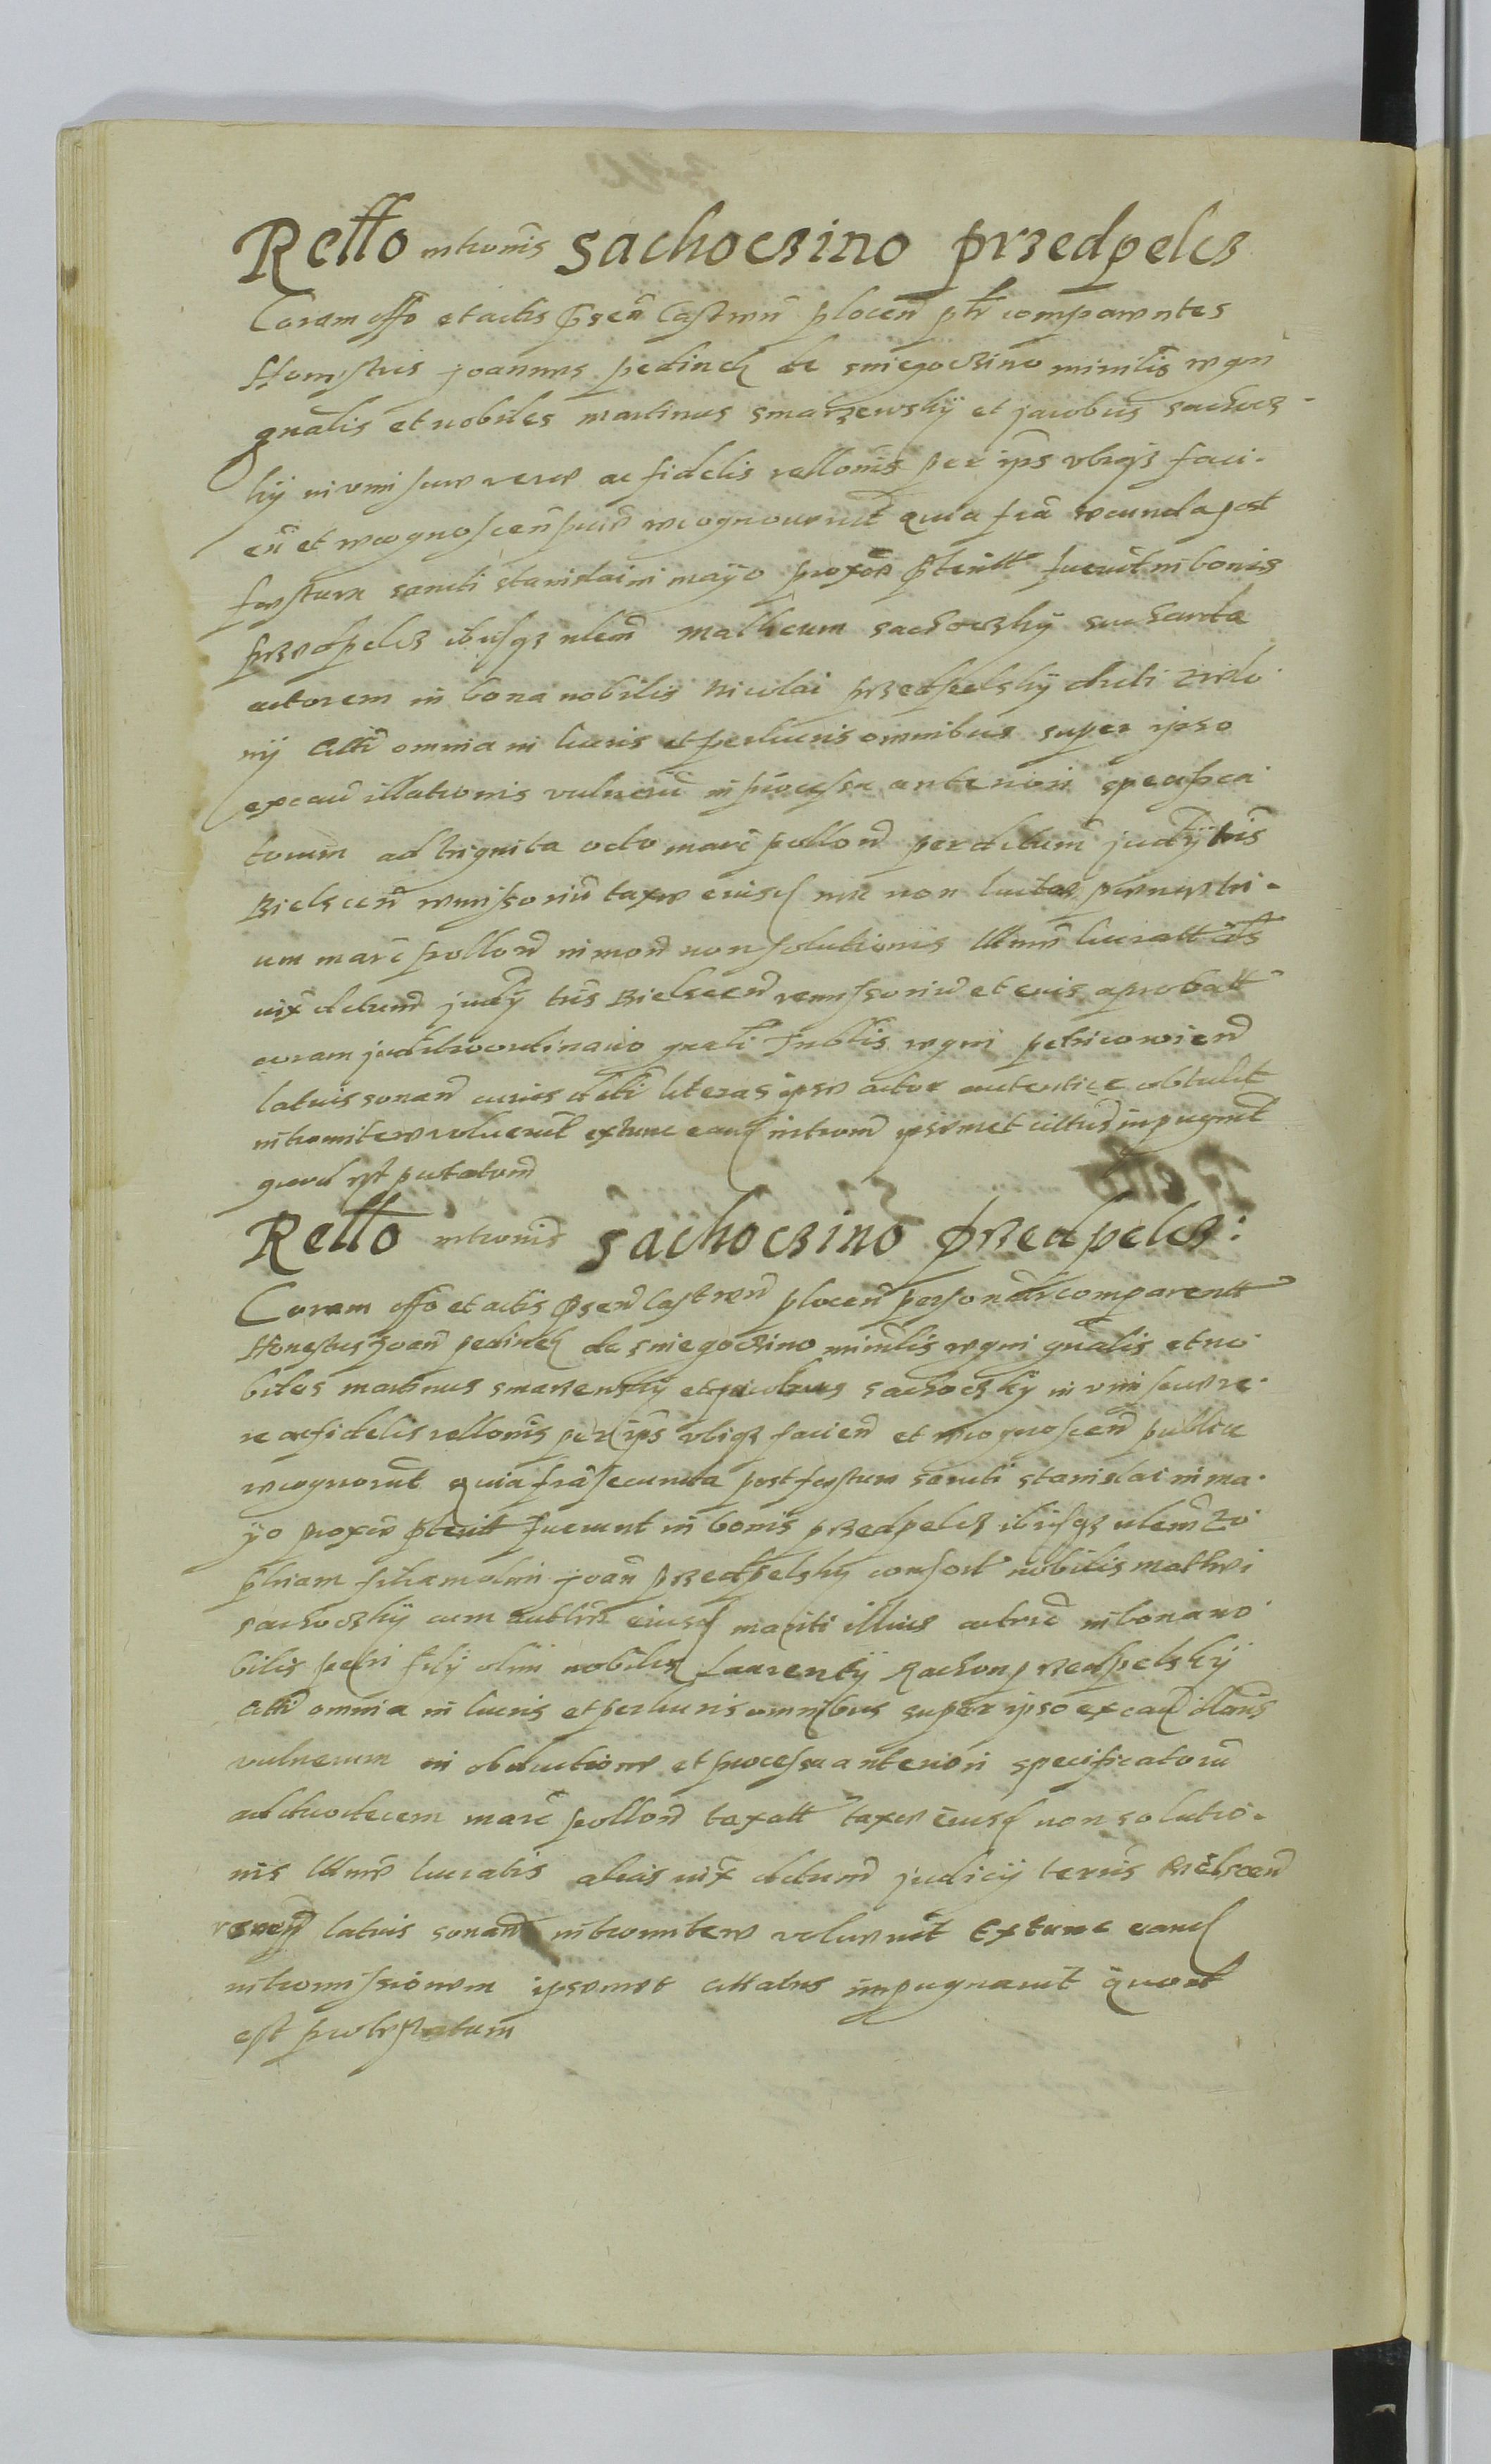 Rello intromis sachoczino przedpelcz
Coram offo et actis pnsen Castren plocen plr comparentes
Honestus joannes pedinek de sniegoczino ministlis regni
gnalis et nobiles martinus smarzewskij et jacobus sachocz-
kij in vim sue vere ac fidelis rellonis per ipos vbiqz faci-
en et recognoscen sue recognoverut quia fria secunda post
festum sancti stanislai in mayo proxe pteritt fuerut in bonis
przedpelcz ibusqz volen matheum sachoczkij suchanta
actorem in bona nobilis nicolai przedpelskij dicti
nij Citti omnia in lucris et perlucris omnibus super ipso
ex cau illationis vulneru in processu anteriori specifica
torum ad triginta octo marc pollon per dcrtum judij tris
Bielscen remissoriu taxe eiusd nec non luctas pene tri-
um marc pollon in mon non solutionis lucratt als
iux dctum judij tris Bielscen remissoriu et eius aprobatt
coram judicio ordinario gnali regni petricovien
latius sonan cuius dcti literas ipse actor autentice obtulit
intromitere voluerut extunc eand introm ipsemet cittus inpugnit
quod est ptatum
Rello intromis sachoczino przedpelcz:
Coram offo et actis pnsen Castren plocen personalr comparentt
Honestus Joan pedinek de sniegoczino ministlis regni gnalis et no
biles martinus smarzewskij et jacobus sachoczkij in vim sue ve-
re ac fidelis rellonis per ipos vbiqz facien et recognoscen publice
recognorut quia fria secunda post festum sancti stanislai in ma-
yo proxe pteritt fuerunt in bonis przedpelcz ibusqz volen Zo
phiam filiam olim joan przedpelsky consort nobilis mathei
sachoczkij cum autte eiusd mariti illius actrice in bona no
bilis petri filij olim nobilis laurentij Rachon przedpelskij
Citti omnia in lucris et perlucris omnibus super ipso ex cau illanis
vulnerum in obductione et processu anteriori specificatoru
ad duodecem marc pollon taxatt taxe eiusd non solutio-
nis lucratis alias iux dctum judicij terris Bielscen
latius sonan intromitere voluerut Extunc eand
intromissionem ipsemet cittatus impugnavit quod
est protestatum